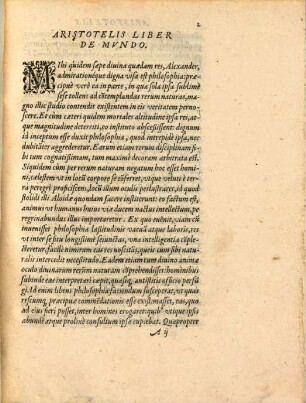 2
ARISTOTELIS LIBER
DE MVNDO.
MIhi quidem sæpe diuina quædam res, Alexander,
admirationéque digna visa est philosophia: præ-
cipuè verò ea in parte, in qua sola ipsa sublimè
sese tollens ad cōtemplandas rerum naturas, ma-
gno illic studio contendit existentem in eis veritatem perno-
scere. Et cùm cæteri quidem mortales altitudine ipsa rei, at-
que magnitudine deterriti, eo instituto abscessissent: dignum
id inceptum esse duxit philosophia, quod intrepidè ipsa, nec
dubitanter aggrederetur. Earum etiam rerum disciplinam si-
bi tutam cognitissimam, tum maximè decoram arbitrata est.
Siquidem cùm peruerum naturam negatum hoc esset homi-
ni, cælestem vt in locū corpore se cōferret, vtque è ter-
ra peregrè proficiscens, locū illum oculis perlustraret, id quod
stolidi illi Aloidæ quondam facere institerunt: eo factum est,
animus vt humanus huius viæ ducem nactus intellectum, pe-
regrinabundus illuc impenetraret.
Ex quo euenit, viam
immensam philosophia lassitudinis vacua atque laboris, re-
vt inter se suis longissimè seiunctas, vna intelligentia cōple-
cteretur, facilè nimirum ei res vestigans, quis cum sibi natu-
ralis intercedit necessitudo. Eadem etiam tum diuino animæ
oculo diuinarum rerum naturam cōprehendisset: hominibus
subinde eas interpretari cœpit, quasi antistitis officio persun-
gi. Id enim libens philosophia faciendum susceperat, vt quas
res in primis præcipua commendationis esse existimasset, eas, quoad
ad eius fieri posset, inter homines erogaret: quòd vtique ipsis
abundè atque prolixè consultum ipsa cupiebat. Quapropter
A ij